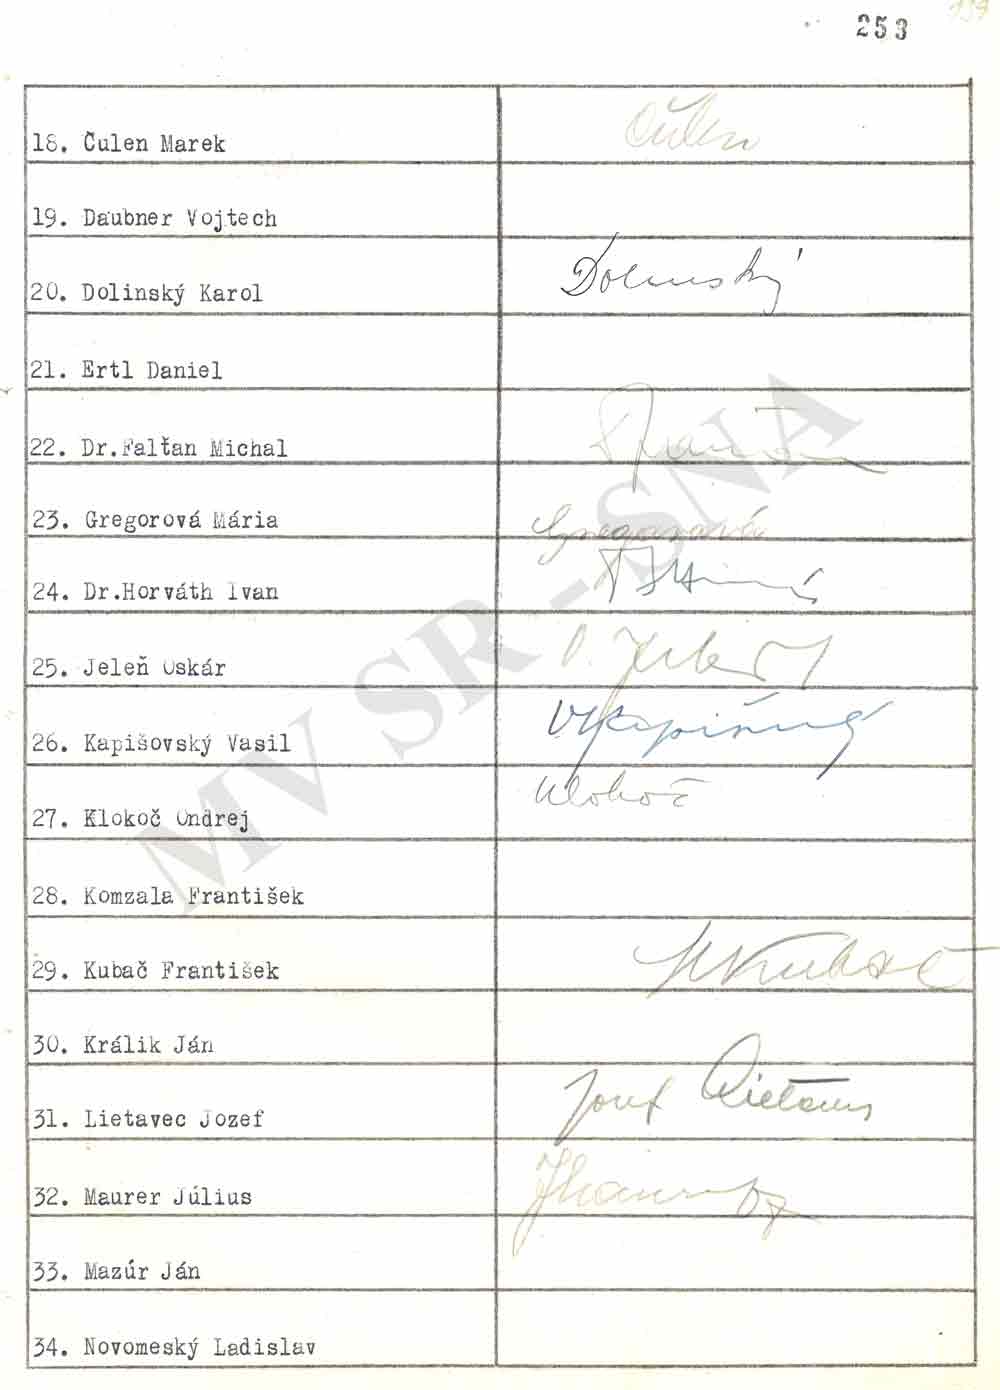 253
18. Čulen Marek Čulen
19. Daubner Vojtech
20. Dolinský Karol Dolinský
21. Ertl Daniel
22. Dr.Falťan Michal
23. Gregorová Mária Gregorová
24. Dr.Horváth Ivan
25. Jeleň Oskár O. Jeleň
26. Kapišovský Vasil
27. Klokoč Ondrej Klokoč
28. Komzala František
29. Kubač František Kubač
30. Králik Ján
31. Lietavec Jozef Jozef Lietavec
32. Maurer Július
33. Mazúr Ján
34. Novomeský Ladislav
MV SR - SNA